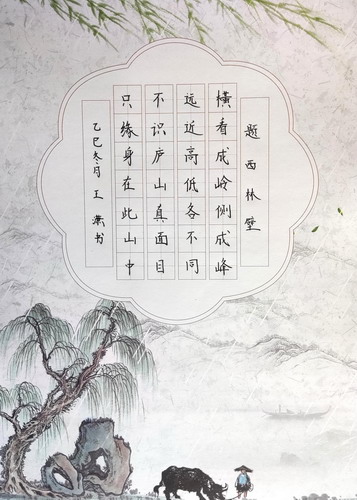 题西林壁
横看成岭侧成峰
远近高低各不同
不识庐山真面目
只缘身在此山中
乙巳冬月王书